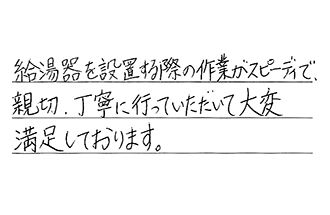 給湯器を設置する際の作業がスピーディで、
親切、丁寧に行っていただいて大変
満足しております。